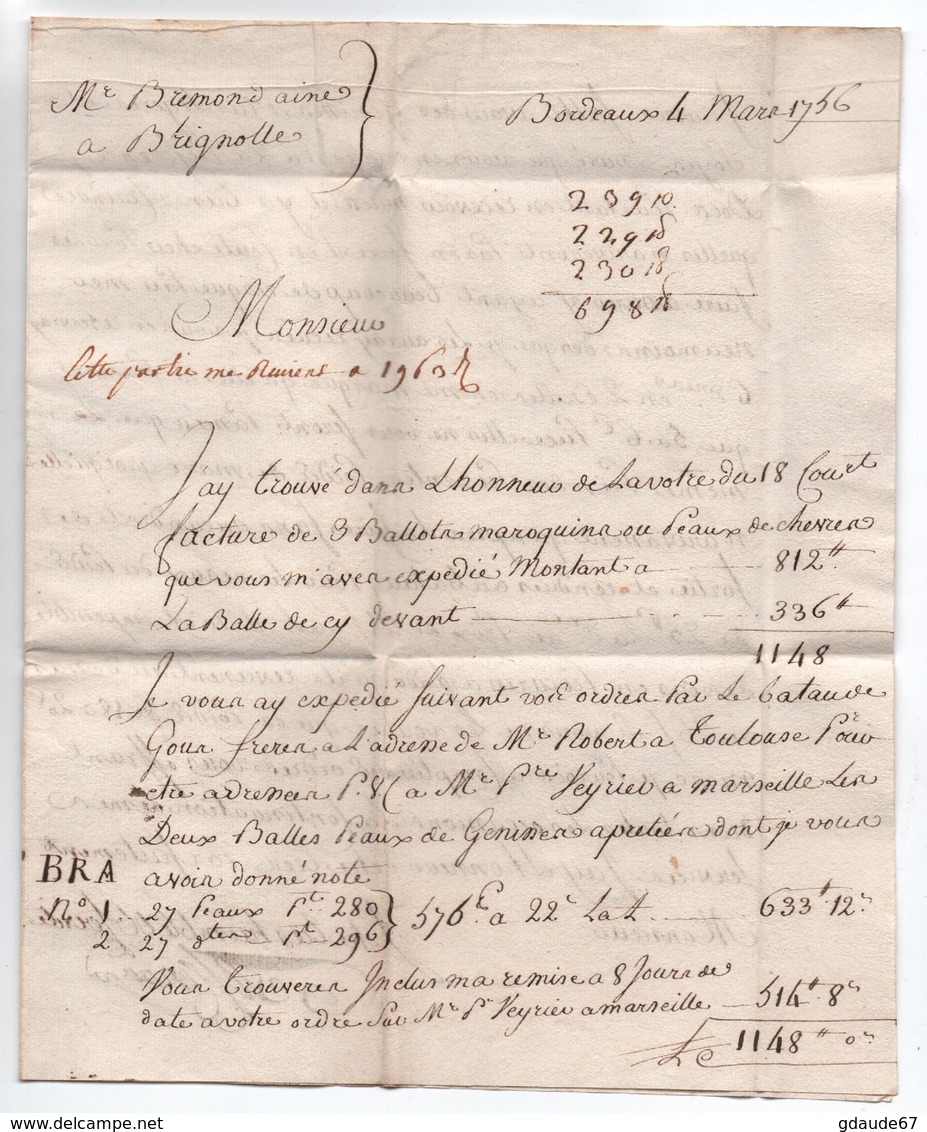 Mr. Bremond ainé
a Brignolle
Bordeaux 4 Mars 1756
239 10.
229 18
230 18
698 18
Monsieur
Cette partie me Revient a 1963
Jay trouvé dans Lhonneur de La votre du 18 Court
facture de 3 Ballots maroquins ou Peaux de chevres
que vous m'aves expedié Montant a 812 tt
La Balle de cy devant 336 tt
1148
Je vous ay expedié suivant vos ordres Par Le bateau de
Gous freres a L'adresse de Mr. Robert a Toulouse Pour
etre adressées P. &C a Mr. Pre Veyrier a marseille Les
Deux Balles Peaux de Genisses apretées dont je vous
avois donné note
BRA
No. 1 27 Peaux Pt. 280
2 27 dtes Pt. 296
576 a 22s La L 633 tt 12s
Vous trouveres Inclus ma remise a 8 Jours de
date a votre ordre Sur Mr. Pr Veyrier a marseille 514 tt 8s
1148 tt 0s
gdaude67